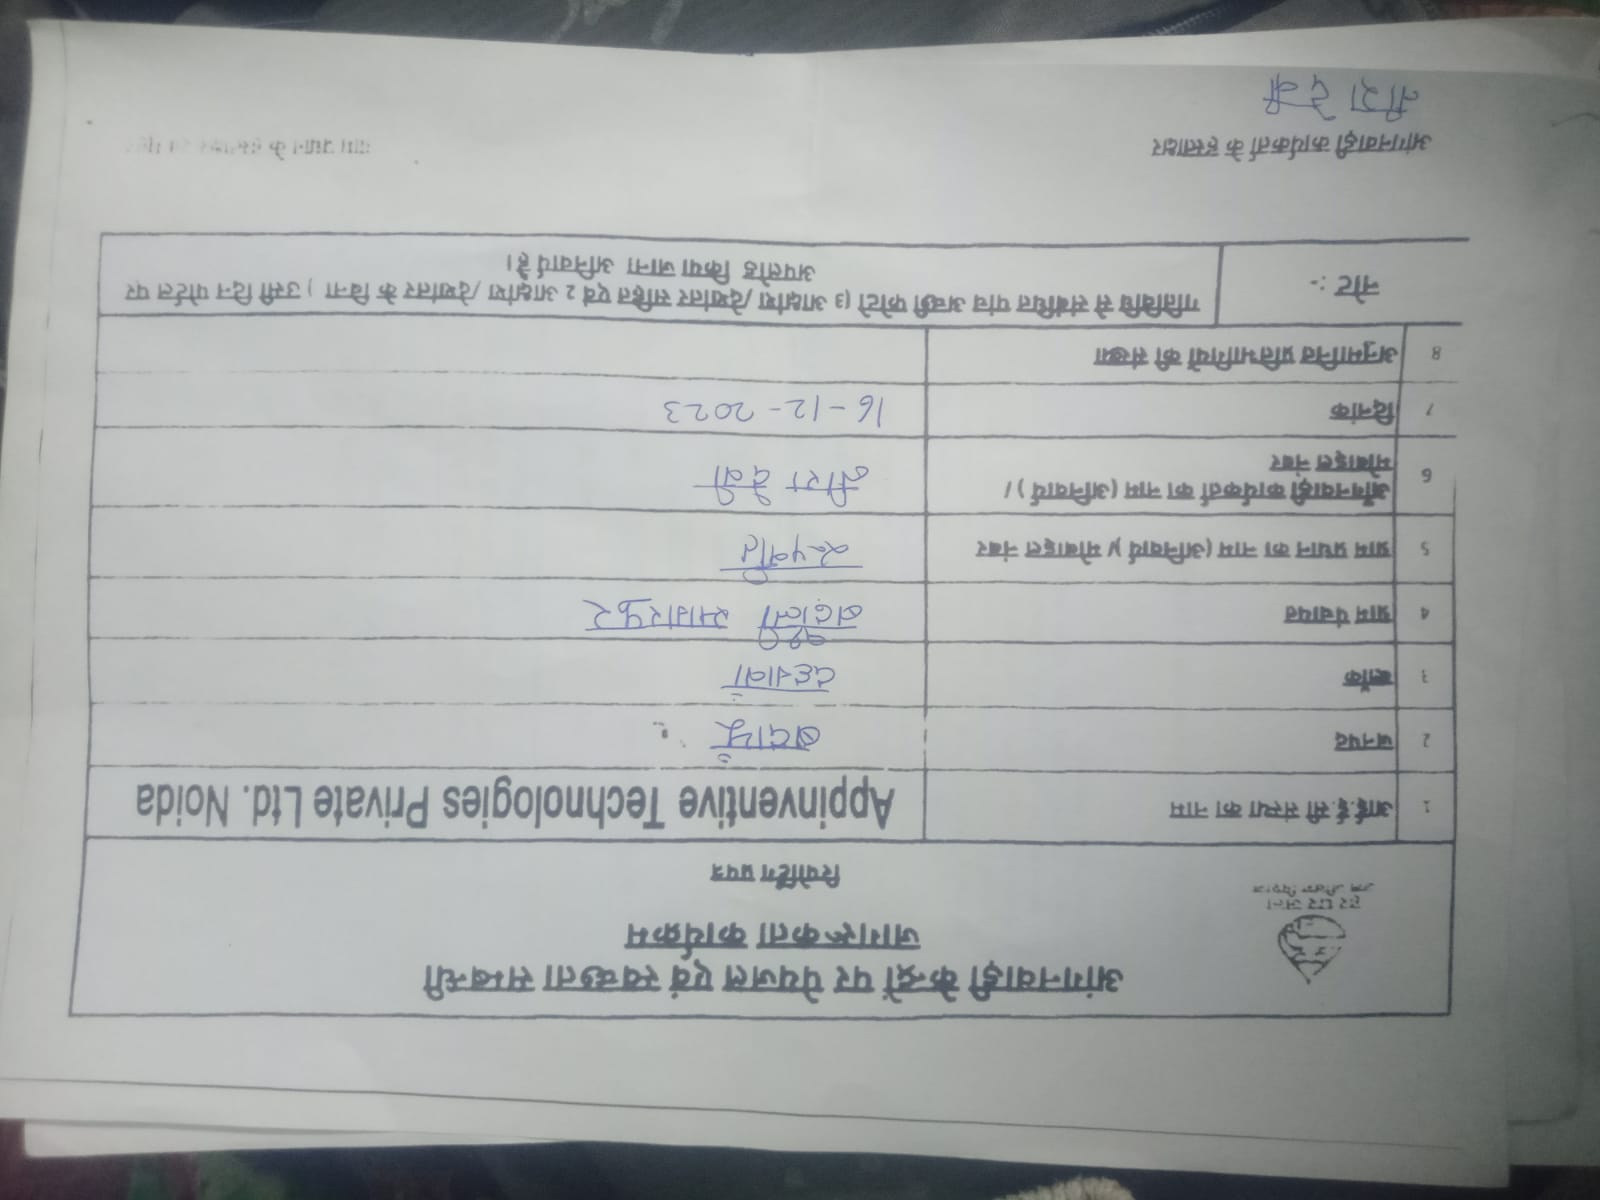 आंगनवाड़ी केन्द्रों पर पेयजल एवं स्वच्छता सम्बन्धी
जागरूकता कार्यक्रम
रिपोर्टिंग प्रपत्र
हर घर जल
जल जीवन मिशन
1 आई.ई.सी संस्था का नाम Appinventive Technologies Private Ltd. Noida
2 जनपद बदायूं
3 ब्लॉक दहगवां
4 ग्राम पंचायत
5 ग्राम प्रधान का नाम (अनिवार्य) मोबाइल नंबर
6 आँगनवाड़ी कार्यकर्ता का नाम (अनिवार्य)। नीरा देवी
मोबाइल नंबर
7 दिनांक 16-12-2023
8 अनुमानित प्रतिभागियों की संख्या
नोट :- गतिविधि से संबंधित पांच अच्छी फोटो (3 आक्षांश/देशांतर सहित एवं 2 आक्षांश/देशांतर के बिना) उसी दिन पोर्टल पर
अपलोड किया जाना अनिवार्य है।
आंगनवाड़ी कार्यकर्ता के हस्ताक्षर ग्राम प्रधान के हस्ताक्षर
नीरा देवी